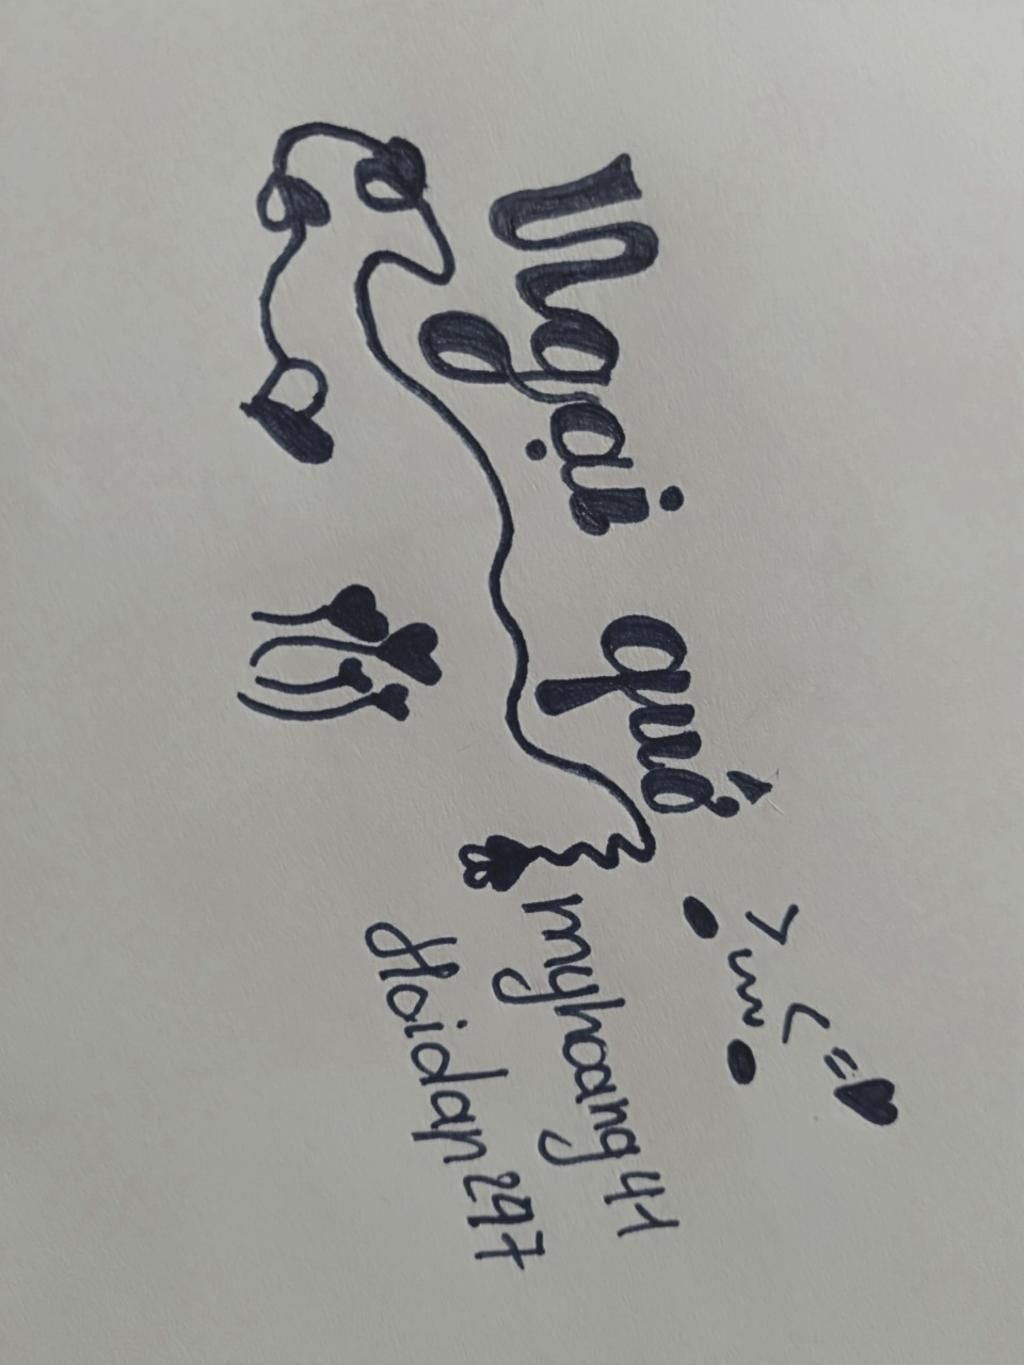 Ngại quớ
>.<
myhoang41
Hoidap247